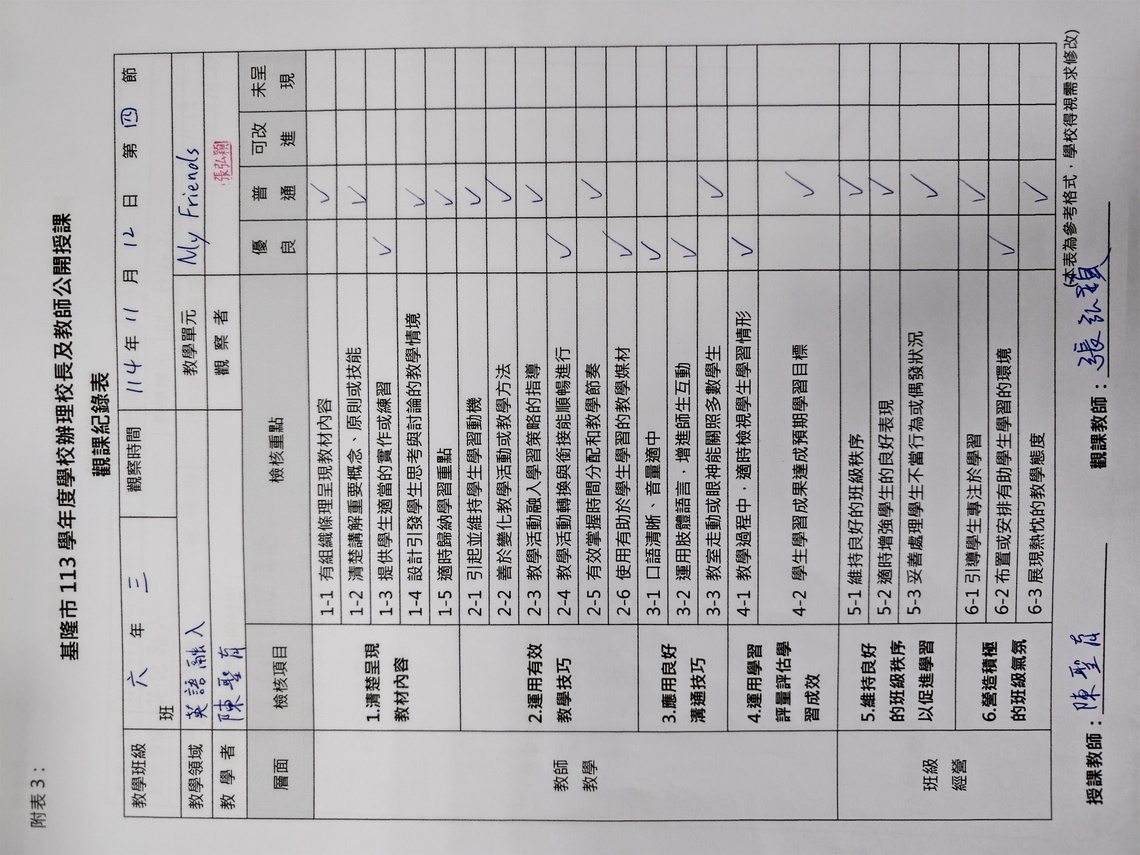 附表 3：
基隆市 113 學年度學校辦理校長及教師公開授課
觀課紀錄表
教學班級 六 年 三 班 觀察時間 114 年 11 月 12 日 第 四 節
教學領域 英語融入 教學單元 My Friends
教學者 陳聖育 觀察者 張弘穎
層面 檢核項目 檢核重點 優良 普通 可改進 未呈現
教師教學
1.清楚呈現教材內容
1-1 有組織條理呈現教材內容 ✓
1-2 清楚講解重要概念、原則或技能 ✓
1-3 提供學生適當的實作或練習 ✓
1-4 設計引發學生思考與討論的教學情境 ✓
1-5 適時歸納學習重點 ✓
2.運用有效教學技巧
2-1 引起並維持學生學習動機 ✓
2-2 善於變化教學活動或教學方法 ✓
2-3 教學活動融入學習策略的指導 ✓
2-4 教學活動轉換與銜接能順暢進行 ✓
2-5 有效掌握時間分配和教學節奏 ✓
2-6 使用有助於學生學習的教學媒材 ✓
3.應用良好溝通技巧
3-1 口語清晰、音量適中 ✓
3-2 運用肢體語言，增進師生互動 ✓
3-3 教室走動或眼神能關照多數學生 ✓
4.運用學習評量評估學習成效
4-1 教學過程中，適時檢視學生學習情形 ✓
4-2 學生學習成果達成預期學習目標 ✓
班級經營
5.維持良好的班級秩序以促進學習
5-1 維持良好的班級秩序 ✓
5-2 適時增強學生的良好表現 ✓
5-3 妥善處理學生不當行為或偶發狀況 ✓
6.營造積極的班級氣氛
6-1 引導學生專注於學習 ✓
6-2 布置或安排有助學生學習的環境 ✓
6-3 展現熱忱的教學態度 ✓
(本表為參考格式，學校得視需求修改)
授課教師：陳聖育 觀課教師：張弘穎